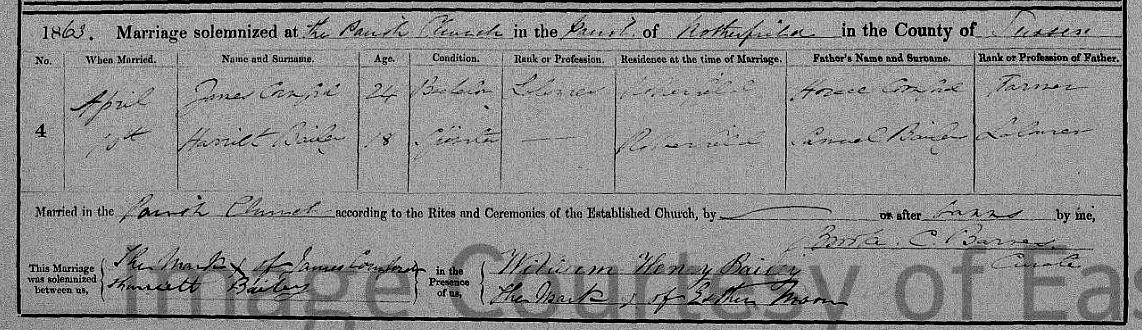 1863. Marriage solemnized at the Parish Church in the Parish of Rotherfield in the County of Sussex
No. When Married. Name and Surname. Age. Condition. Rank or Profession. Residence at the time of Marriage. Father's Name and Surname. Rank or Profession of Father.
4 April James 24 Bachelor Labourer Rotherfield Horace Farmer
Harriet Bailey 18 Spinster — Rotherfield Samuel Bailey Labourer
Married in the Parish Church according to the Rites and Ceremonies of the Established Church, by or after banns by me,
C. Barnes
Curate
This Marriage was solemnized between us, The Mark X of James in the Presence of us, William Henry Bailey
Harriett Bailey The Mark X of Esther Moon
Image Courtesy of Eas